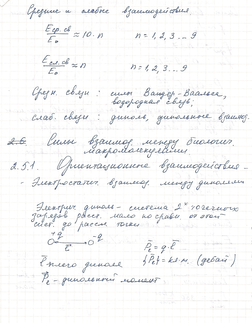 Средние и слабые взаимодействия
Eср.св / Eп ≈ 10·n    n = 1, 2, 3 ... 9
Eсл.св / Eп ≈ n    n = 1, 2, 3 ... 9
Средн. связи : силы Вандер-Ваальса, водородная связь,
слаб. связи : диполь, дипольное взаимод.
Силы взаимод. между биологич. макромолекулами
2.5.1. Ориентационное взаимодействие -
- Электростатич. взаимод. между диполями
Электрич. диполь - система 2х точечных
зарядов расст. мало по сравн. от этой
сист. до рассм. точки
+q    -q
P̄e = q·l̄
l̄ плечо диполя    {Pe} = Кл·м. (дебай)
P̄e - дипольный момент.